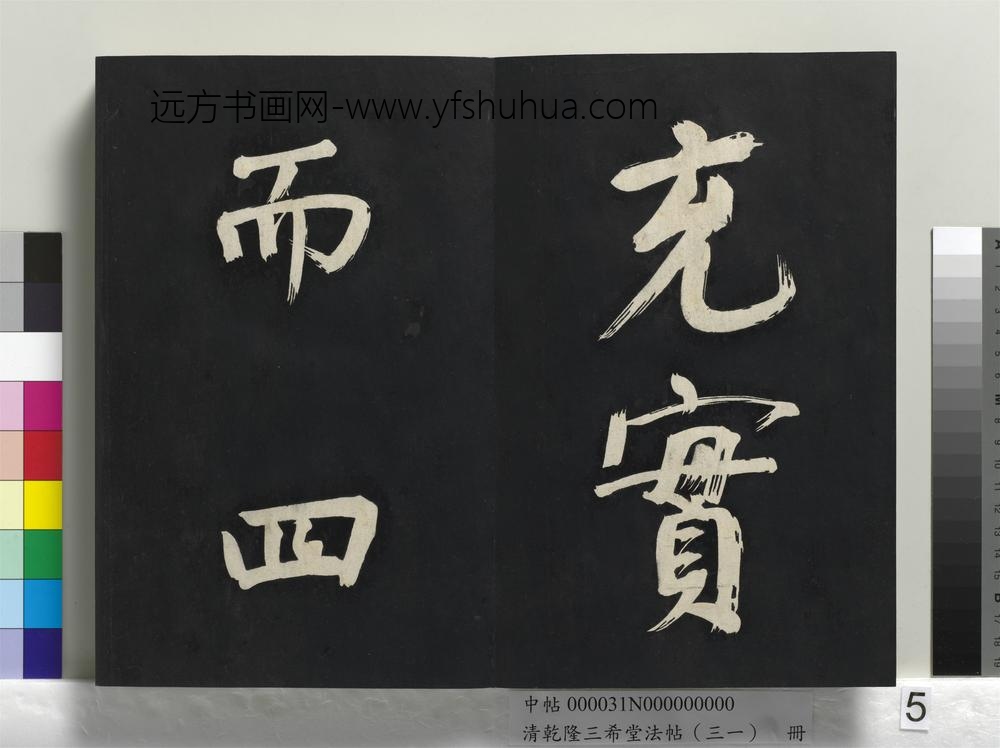 远方书画网-www.yfshuhua.com
充實
而四
中帖 000031N000000000
清乾隆三希堂法帖（三一） 冊
5